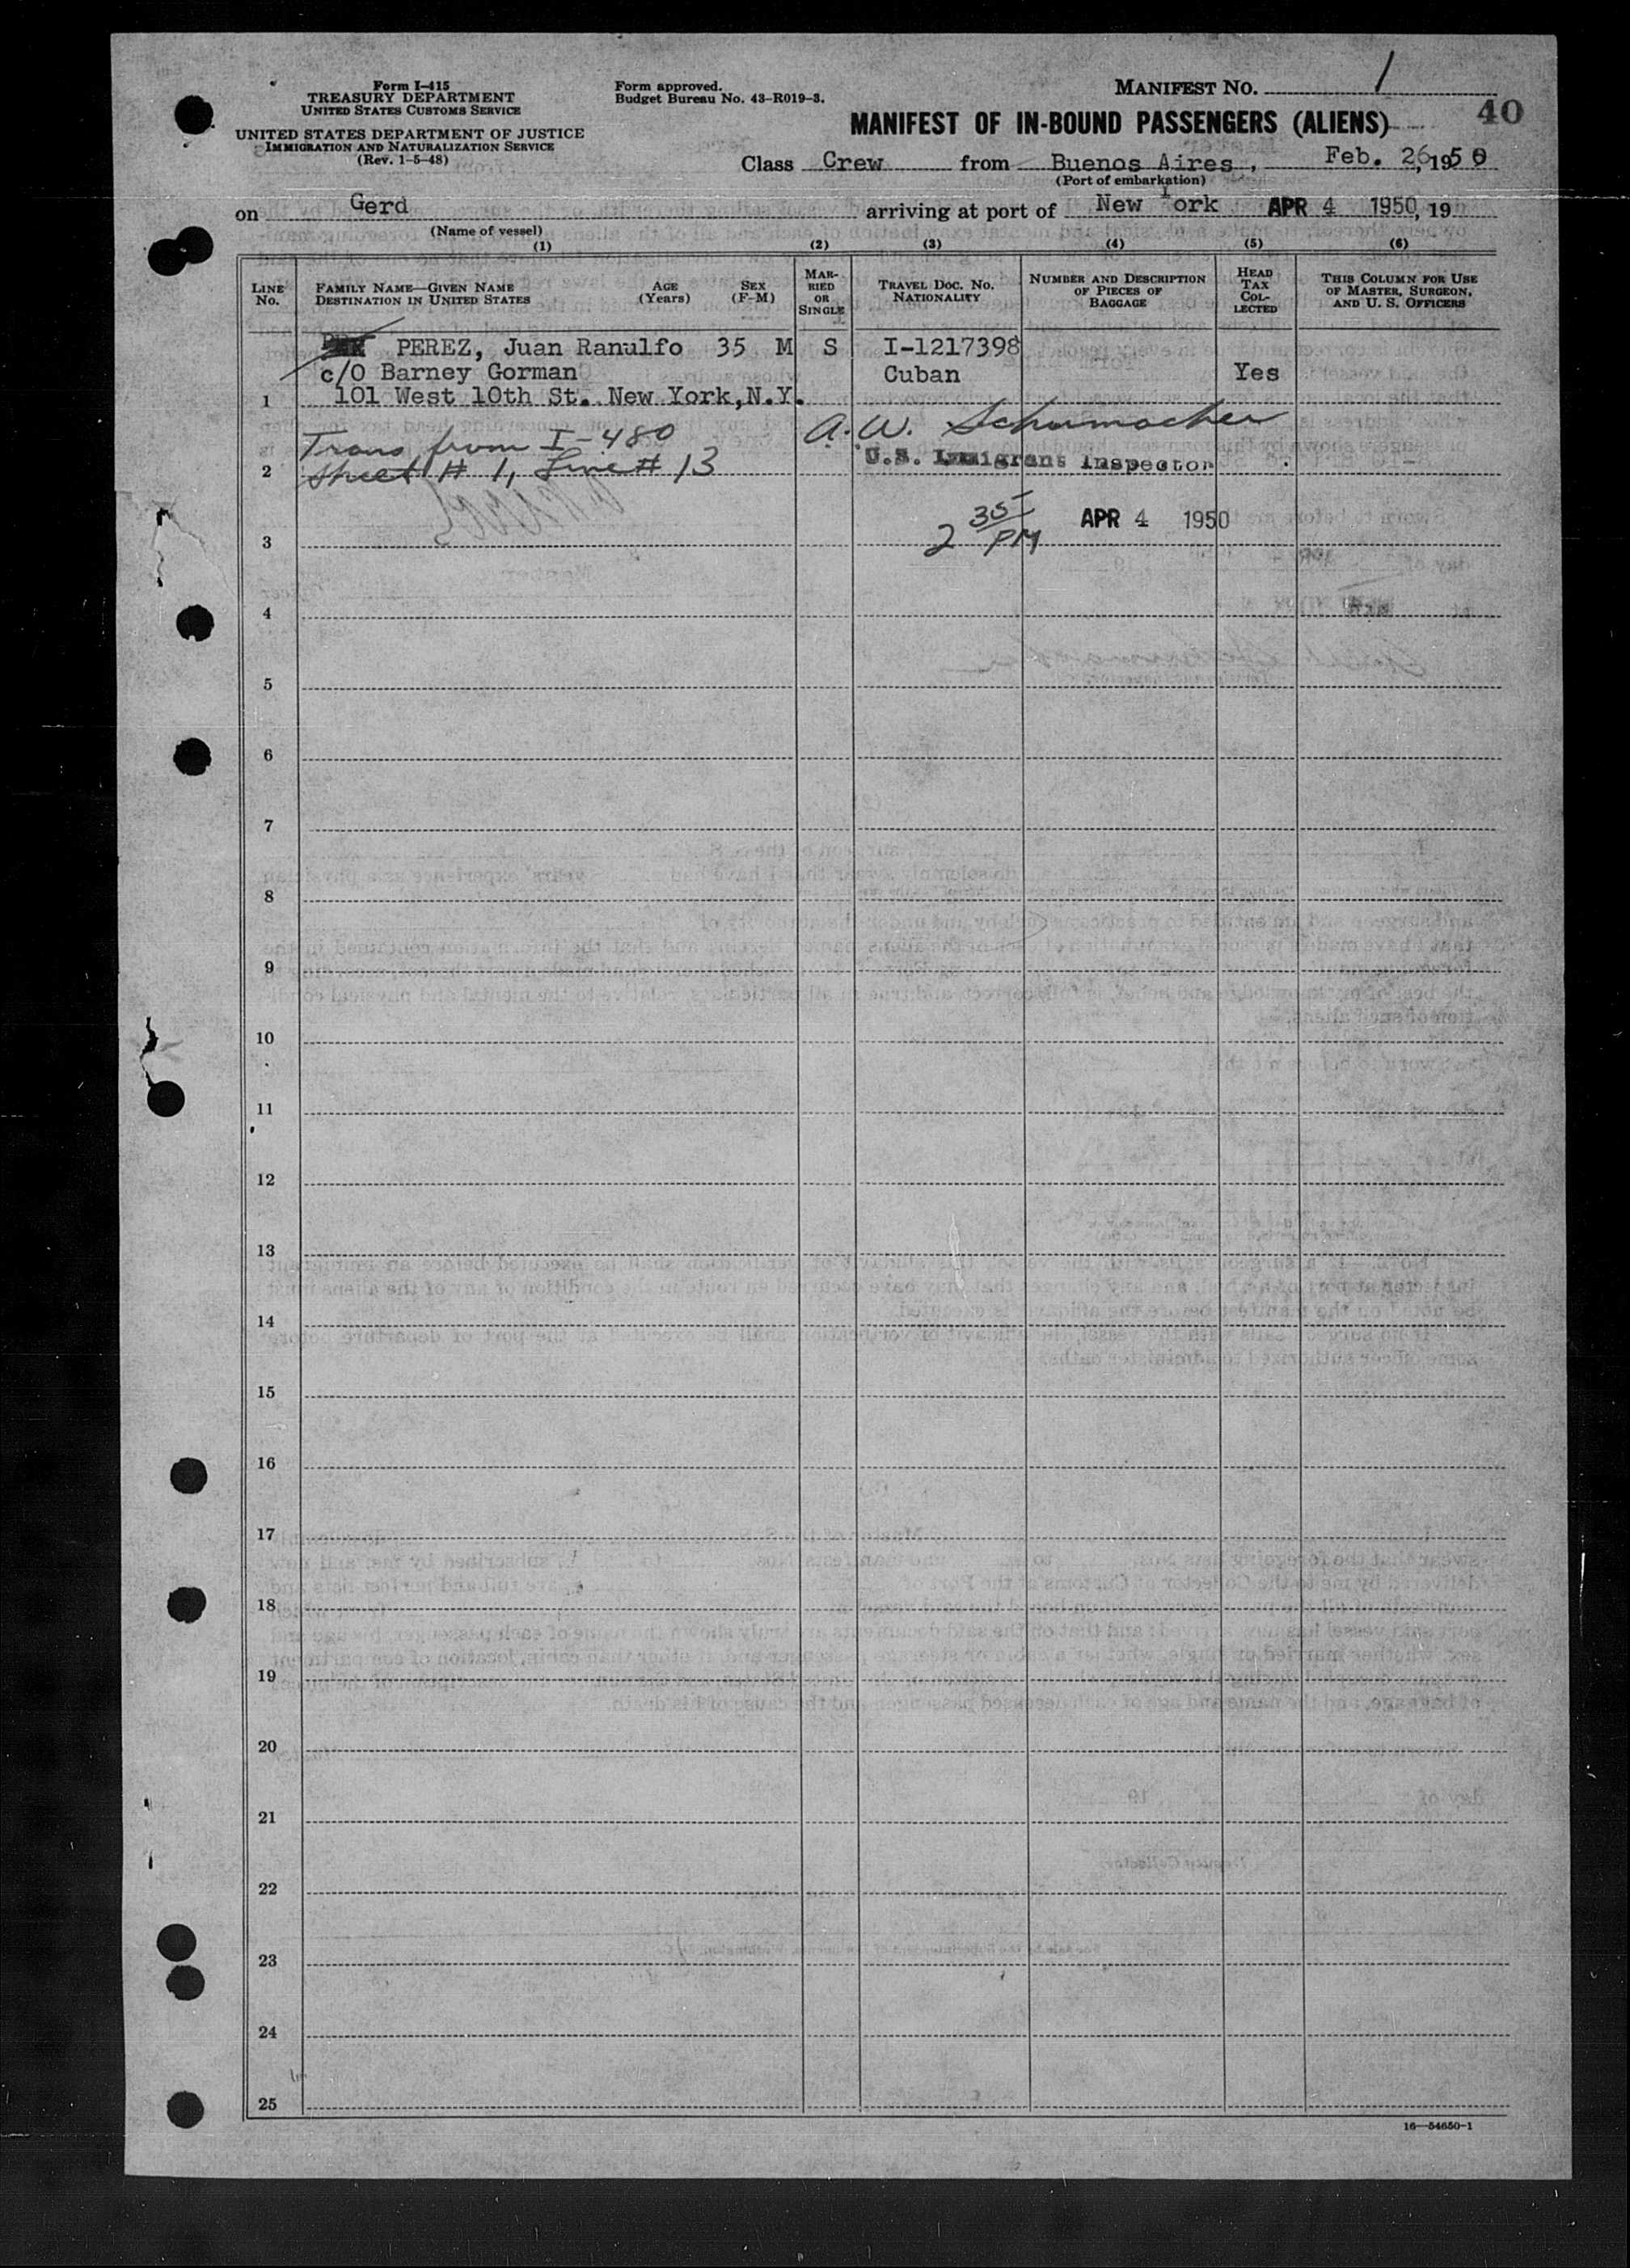 Form I-415
TREASURY DEPARTMENT
UNITED STATES CUSTOMS SERVICE
UNITED STATES DEPARTMENT OF JUSTICE
IMMIGRATION AND NATURALIZATION SERVICE
(Rev. 1-5-48)
Form approved.
Budget Bureau No. 43-R019-3.
MANIFEST NO. 1
40
MANIFEST OF IN-BOUND PASSENGERS (ALIENS)
Class Crew from Buenos Aires, Feb. 26, 1950
(Port of embarkation)
on Gerd arriving at port of New York APR 4 1950, 19
(Name of vessel)
(1) (2) (3) (4) (5) (6)
LINE No.
FAMILY NAME—GIVEN NAME
DESTINATION IN UNITED STATES
AGE (Years)
SEX (F-M)
MARRIED OR SINGLE
TRAVEL DOC. NO.
NATIONALITY
NUMBER AND DESCRIPTION OF PIECES OF BAGGAGE
HEAD TAX COLLECTED
THIS COLUMN FOR USE OF MASTER, SURGEON, AND U. S. OFFICERS
PEREZ, Juan Ranulfo 35 M S I-1217398
c/O Barney Gorman Cuban Yes
1 101 West 10th St. New York, N.Y.
Trans from I-480 A. W. Schumacher
2 Sheet # 1, Line # 13 U.S. Immigrant Inspector
3 2 35 PM APR 4 1950
4
5
6
7
8
9
10
11
12
13
14
15
16
17
18
19
20
21
22
23
24
25
16—54650-1